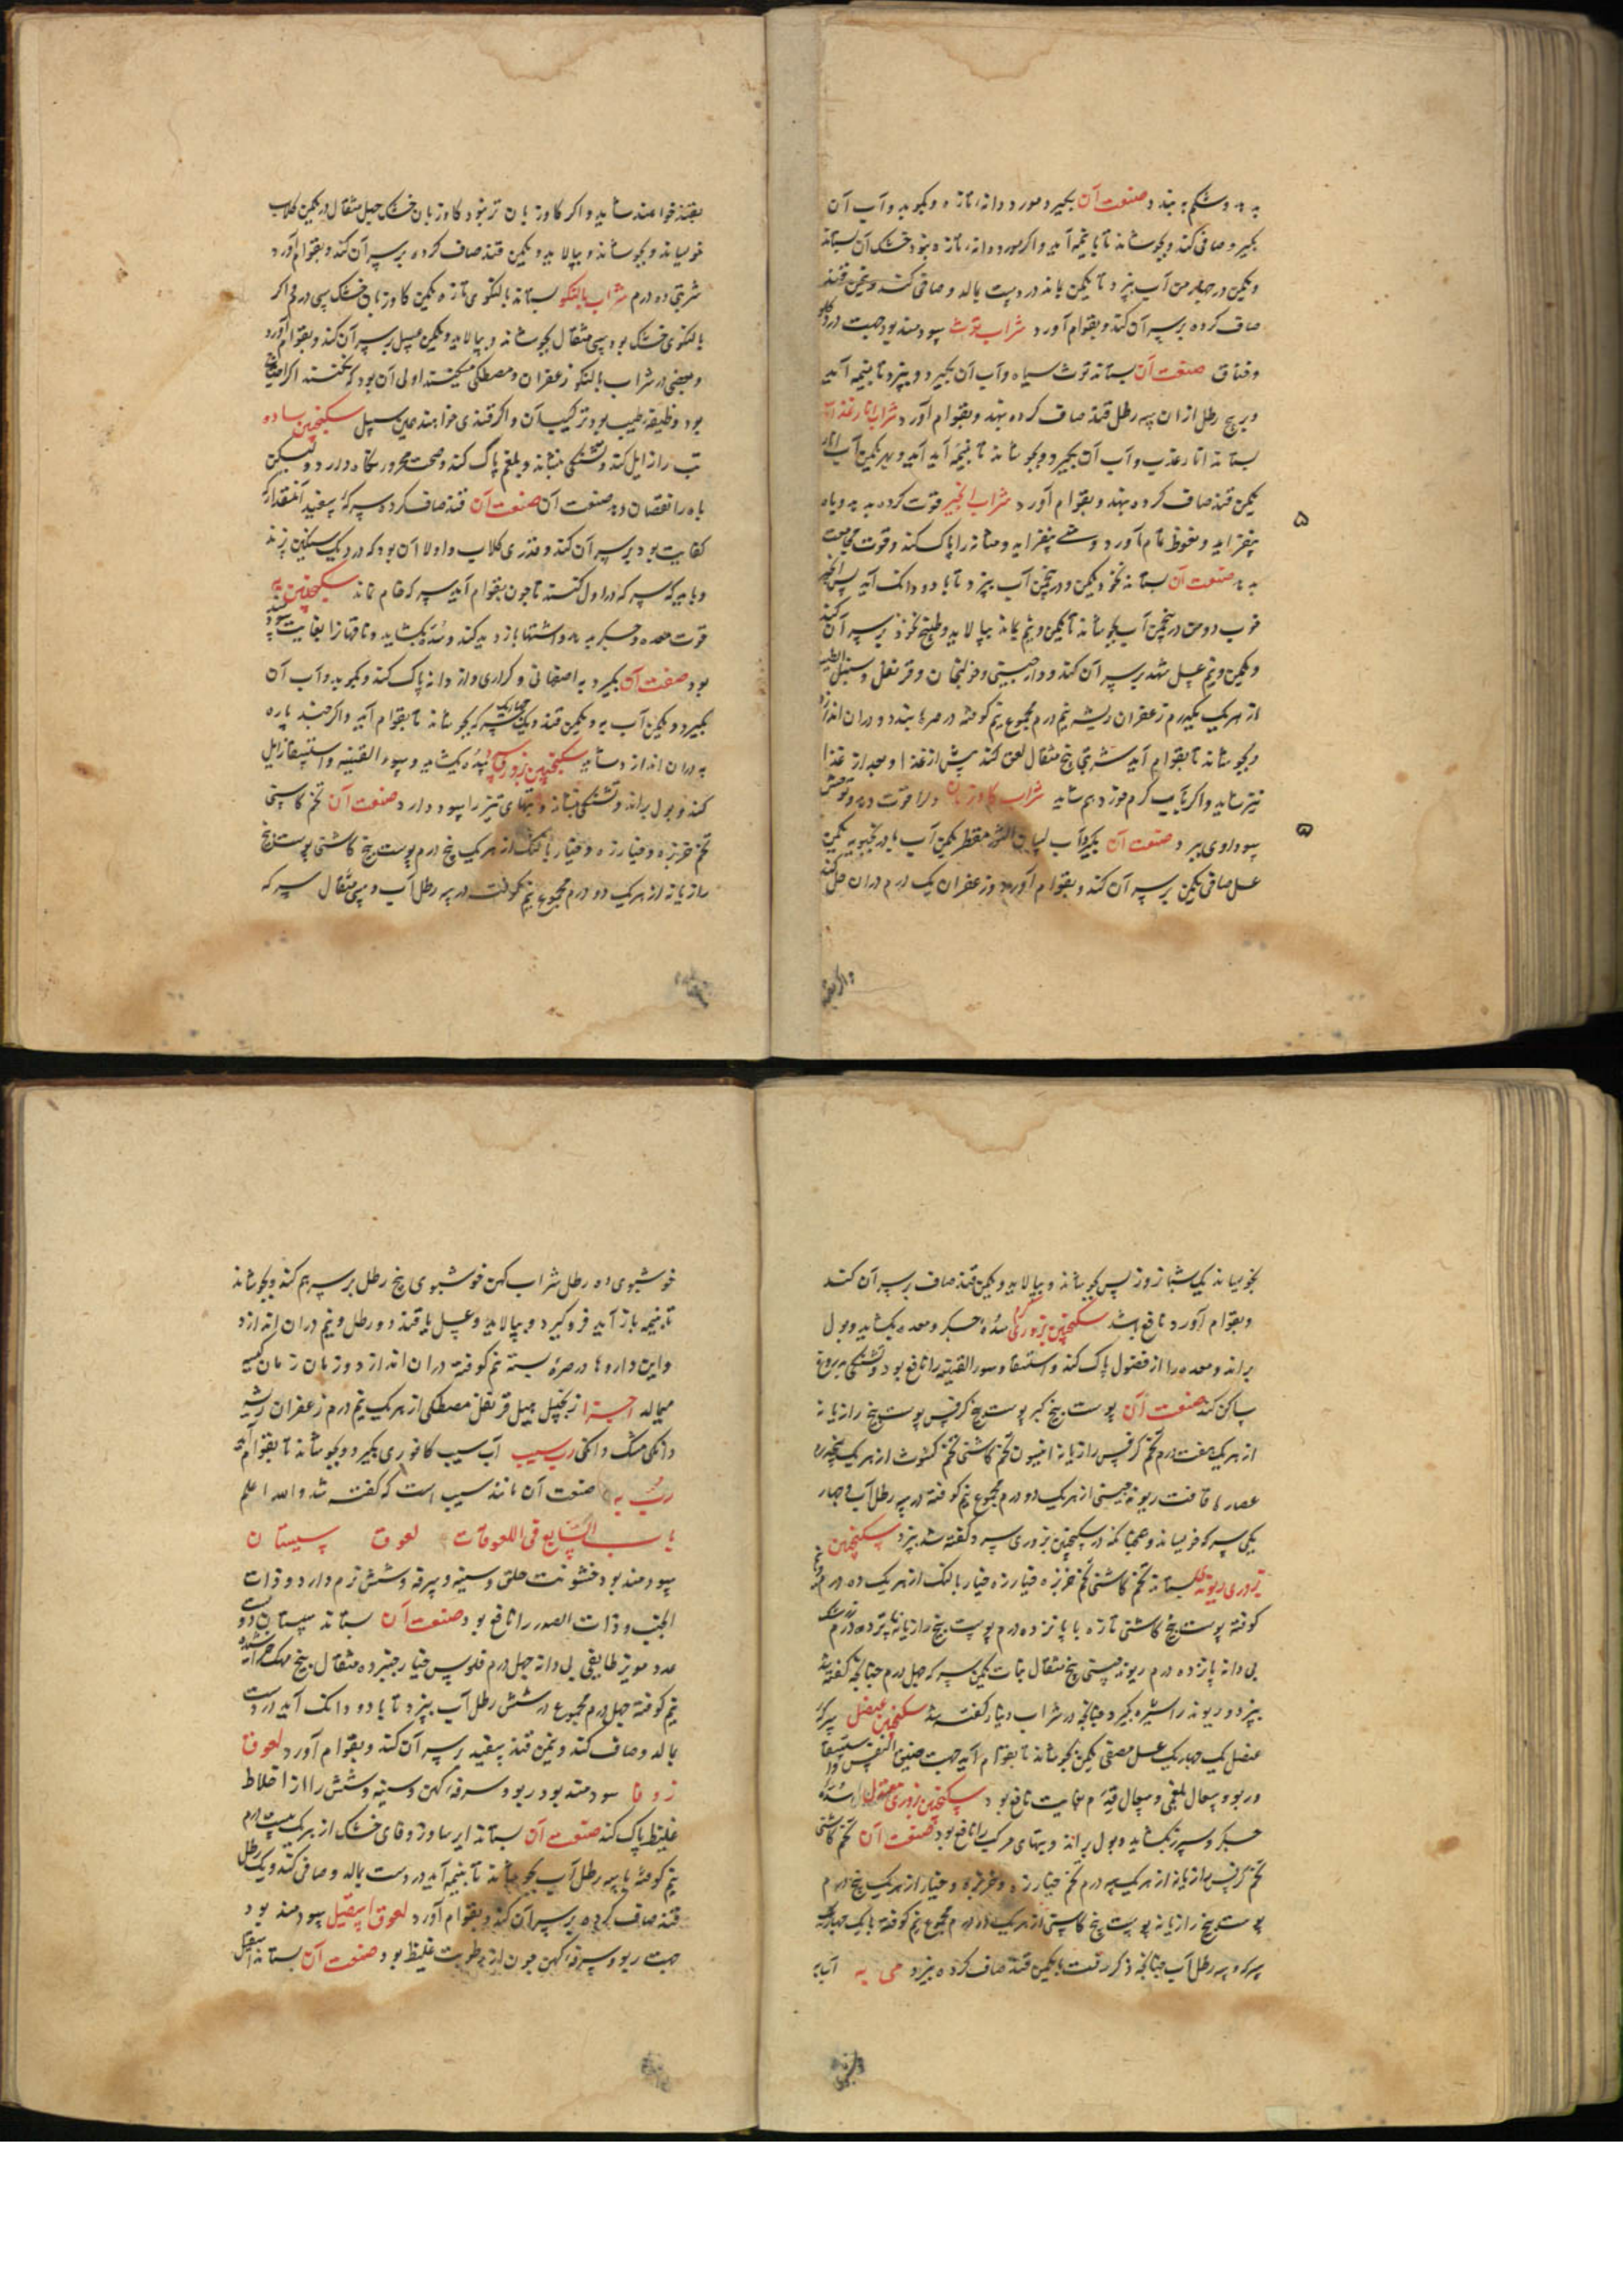 بدهد و شکم ببندد صنعت آن بگیرد مورد دانه تازه و بکوبد و آب آن
بگیرد و صافی کند و بجوشاند تا بنیمه آید و اگر مورد دانه تازه نبود خشک آن بستاند
و یکمن در چهار من آب بپزد تا یکمن بماند در دست بمالد و صافی کند و یکمن قند
صاف کرده بر سر آن کند و بقوام آورد شراب توث سودمند بود جهت درد گلو
و خناق صنعت آن بستاند توث سیاه و آب آن بگیرد و بپزد تا بنیمه آید
و بر پنج رطل ازان سه رطل قند صاف کرده نهد و بقوام آورد شراب انار عذب آن
بستاند انار عذب و آب آن بگیرد و بجوشاند تا بنیمه آید و بهر یکمن آب انار
یکمن قند صاف کرده نهد و بقوام آورد شراب انجیر قوت کرده بدهد و باه
بیفزاید و نعوظ تمام آورد و منی بیفزاید و مثانه را پاک کند و قوت مجامعت
بدهد صنعت آن بستاند نخود یکمن و در پنج من آب بپزد تا با دو دانک آید پس انجیر
خوب دو من در پنج من آب بجوشاند تا یکمن و نیم بماند بپالاید و طبیخ نخود بر سر آن کند
و یکمن و نیم عسل شهد بر سر آن کند و دارچینی و خولنجان و قرنفل و سنبل الطیب
از هر یک یکدرم زعفران ریشه نیم درم مجموع نیم کوفته در صره بندد و دران اندازد
و بجوشاند تا بقوام آید شربتی پنج مثقال لعق کند پیش از غذا و بعد از غذا
نیز شاید و اگر بآب گرم خورد هم شاید شراب گاوزبان دلرا قوت دهد و توحش
سوداوی ببرد صنعت آن بگیرد آب لسان الثور مقطر یکمن آب بادرنجبویه یکمن
عسل صافی یکمن بر سر آن کند و بقوام آورد و زعفران یک درم دران حل کند
و اگر بقند
بقند خواهند شاید و اگر گاوزبان تر نبود گاوزبان خشک چهل مثقال در یکمن گلاب
خوساند و بجوشاند و بپالاید و یکمن قند صاف کرده بر سر آن کند و بقوام آورد
شربتی ده درم شراب بالنکو بستاند بالنکوی تازه یکمن گاوزبان خشک سی درم و اگر
بالنکوی خشک بود سی مثقال بجوشاند و بپالاید و یکمن عسل بر سر آن کند و بقوام آورد
و بعضی در شراب بالنکو زعفران و مصطکی میکنند اولی آن بود که نکنند اگر احتیاج
بود وظیفه طبیب بود ترکیب آن و اگر قندی خواهند همین سبیل سکنجبین ساده
تب را زایل کند و تشنگی بنشاند و بلغم پاک کند و صحت محرور نگاه دارد و لیکن
باه را نقصان دهد صنعت آن صنعت آن قند صاف کرده سرکه سفید آنمقدار که
کفایت بود بر سر آن کند و قدری گلاب و اولا آن بود که در دیک سنگین پزند
و باید که سرکه در اول کنند تا چون بقوام آید سرکه خام نماند سکنجبین به
قوت معده و جگر بدهد و اشتها باز دید کند و سده بکشاید و ناقهانرا بغایت سودمند
بود صنعت آن بگیرد به اصفهانی و کراری و از دانه پاک کند و بکوبد و آب آن
بگیرد و یکمن آب به و یکمن قند و چهاریک سرکه بجوشاند تا بقوام آید و اگر چند پاره
به دران اندازد شاید سکنجبین بزوری سرد سده بکشاید و سوء القنیه و استسقا زایل
کند و بول براند و تشنگی بنشاند و تبهای تیز را سود دارد صنعت آن تخم کاسنی
تخم خربزه و خیارزه و خیار بالنک از هر یک پنج درم پوست بیخ کاسنی پوست بیخ
رازیانه از هر یک دو درم مجموع نیم کوفت در سه رطل آب و سی مثقال سرکه
بخویساند یک شبانروز پس بجوشاند و بپالاید و یکمن قند صاف بر سر آن کند
و بقوام آورد نافع باشد سکنجبین بزوری گرم سده جگر و معده بکشاید و بول
براند و معده را از فضول پاک کند و استسقا و سوء القنیه را نافع بود و تشنگی دروغ
ساکن کند صنعت آن پوست بیخ کبر پوست بیخ کرفس پوست بیخ رازیانه
از هر یک هفت درم تخم کرفس رازیانه انیسون تخم کاسنی تخم کشوث از هر یک پنجدرم
عصاره غافت ریوند چینی از هر یک دو درم مجموع نیم کوفته در سه رطل آب و چهار
یکی سرکه خویساند و همچنانکه در سکنجبین بزوری سرد گفته شد بپزد سکنجبین
بزوری ریوندی بستاند تخم کاسنی تخم خربزه خیارزه خیار بالنک از هر یک ده درم نیم
کوفته پوست بیخ کاسنی تازه پانزده درم پوست بیخ رازیانه پانزده درم
بی دانه پانزده درم ریوند چینی پنج مثقال نبات یکمن سرکه چهل درم چنانکه گفته شد
بپزد و ریوند را شیره بگیرد چنانچه در شراب دینار گفته شد سکنجبین عنصل سرکه
عنصل یک چهاریک عسل مصفی یکمن بجوشاند تا بقوام آید جهت ضیق النفس و استسقا
و ربو و سعال بلغمی و سعال قدیم بغایت نافع بود سکنجبین بزوری معتدل سده
جگر و سپرز بکشاید و بول براند و تبهای مرکب را نافع بود صنعت آن تخم کاسنی
تخم کرفس رازیانه از هر یک سه درم تخم خیارزه و خربزه و خیار از هر یک پنج درم
پوست بیخ رازیانه پوست بیخ کاسنی از هر یک ده درم مجموع نیم کوفته با یک چهاریک
سرکه و سه رطل آب چنانچه ذکر رفت با یکمن قند صاف کرده بپزد می به آب به
خوشبوی ده رطل شراب کهن خوشبوی پنج رطل بر سر هم کند و بجوشاند
تا بنیمه باز آید فرو گیرد و بپالاید و عسل یا قند دو رطل و نیم دران اندازد
و این داروها در صره بسته نیم کوفته دران اندازد و زمان زمان کیسه
میمالد اجزا زنجبیل هیل قرنفل مصطکی از هر یک نیم درم زعفران ریشه
دانکی مشک دانکی رب سیب آب سیب کافوری بگیرد و بجوشاند تا بقوام آید
رب به صنعت آن مانند سیب است که گفته شد والله اعلم
باب السابع فی اللعوقات لعوق سپستان
سودمند بود خشونت حلق و سینه و سرفه و شش نرم دارد و ذات
الجنب و ذات الصدر را نافع بود صنعت آن بستاند سپستان دویست
عدد مویز طایفی بی دانه چهل درم فلوس خیارچنبر ده مثقال بیخ مهک خراشیده
نیم کوفته چهل درم مجموع در شش رطل آب بپزد تا با دو دانک آید در دست
بمالد و صاف کند و یکمن قند سفید بر سر آن کند و بقوام آورد لعوق
زوفا سودمند بود ربو و سرفه کهن و سینه و شش را از اخلاط
غلیظ پاک کند صنعت آن بستاند ایرسا و زوفای خشک از هر یک بیست درم
نیم کوفته با سه رطل آب بجوشاند تا بنیمه آید در دست بمالد و صافی کند و یک رطل
قند صاف کرده بر سر آن کند و بقوام آورد لعوق اسقیل سودمند بود
جهت ربو و سرفه کهن چون از رطوبت غلیظ بود صنعت آن بستاند اسقیل